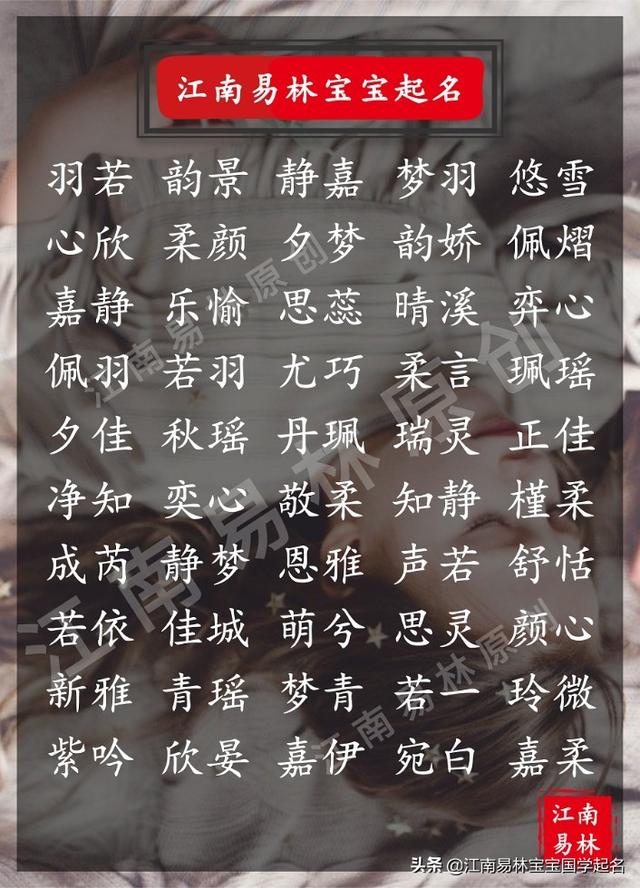 江南易林宝宝起名
羽若 韵景 静嘉 梦羽 悠雪
心欣 柔颜 夕梦 韵娇 佩熠
嘉静 乐愉 思蕊 晴溪 弈心
佩羽 若羽 尤巧 柔言 珮瑶
夕佳 秋瑶 丹珮 瑞灵 正佳
净知 奕心 敬柔 知静 槿柔
成芮 静梦 恩雅 声若 舒恬
若依 佳城 萌兮 思灵 颜心
新雅 青瑶 梦青 若一 玲微
紫吟 欣晏 嘉伊 宛白 嘉柔
江南易林原创
江南易林原创
江南易林原创
江南
易林
头条 @江南易林宝宝国学起名